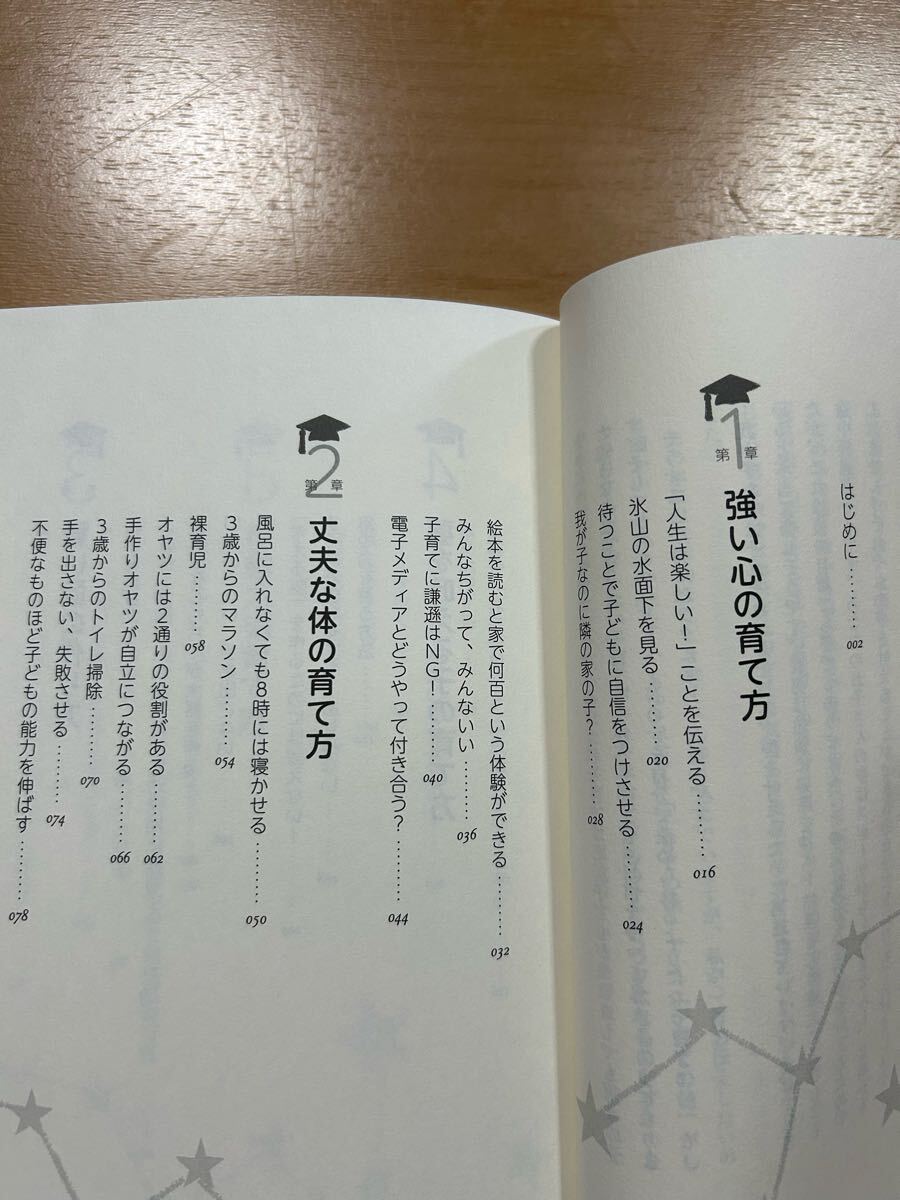 はじめに………002
第1章 強い心の育て方
「人生は楽しい！」ことを伝える………016
氷山の水面下を見る………020
待つことで子どもに自信をつけさせる………024
我が子なのに隣の家の子？………028
絵本を読むと家で何百という体験ができる………032
みんなちがって、みんないい………036
子育てに謙遜はNG！………040
電子メディアとどうやって付き合う？………044
第2章 丈夫な体の育て方
風呂に入れなくても8時には寝かせる………050
3歳からのマラソン………054
裸育児………058
オヤツには2通りの役割がある………062
手作りオヤツが自立につながる………066
3歳からのトイレ掃除………070
手を出さない、失敗させる………074
不便なものほど子どもの能力を伸ばす………078